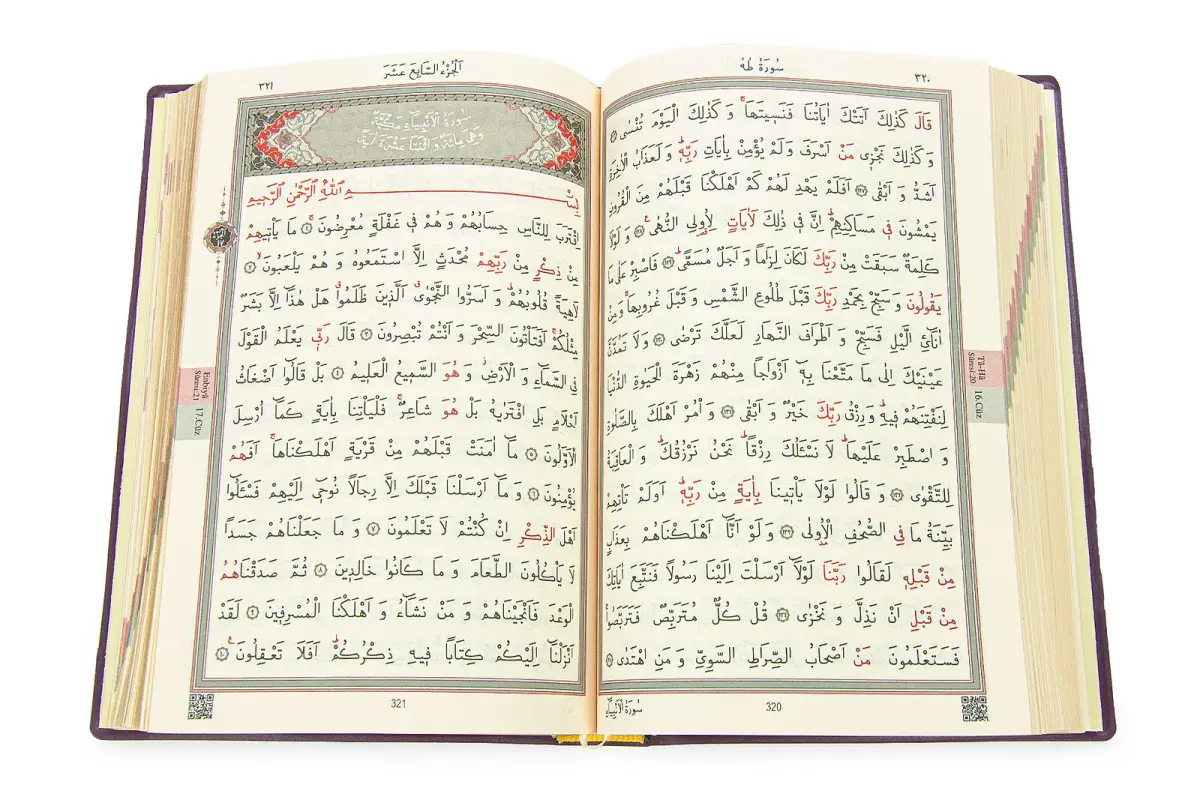 سُورَةُ طٰهٰ
٣٢٠
قَالَ كَذٰلِكَ اَتَتْكَ اٰيَاتُنَا فَنَسٖيتَهَاۚ وَ كَذٰلِكَ الْيَوْمَ تُنْسٰى ﴿١٢٦﴾
وَ كَذٰلِكَ نَجْزٖى مَنْ اَسْرَفَ وَ لَمْ يُؤْمِنْ بِاٰيَاتِ رَبِّهٖؕ وَ لَعَذَابُ الْاٰخِرَةِ
اَشَدُّ وَ اَبْقٰى ﴿١٢٧﴾ اَفَلَمْ يَهْدِ لَهُمْ كَمْ اَهْلَكْنَا قَبْلَهُمْ مِنَ الْقُرُونِ
يَمْشُونَ فٖى مَسَاكِنِهِمْؕ اِنَّ فٖى ذٰلِكَ لَاٰيَاتٍ لِاُولِى النُّهٰىۚ ﴿١٢٨﴾ وَ لَوْلَا
كَلِمَةٌ سَبَقَتْ مِنْ رَبِّكَ لَكَانَ لِزَاماً وَ اَجَلٌ مُسَمًّىؕ ﴿١٢٩﴾ فَاصْبِرْ عَلٰى مَا
يَقُولُونَ وَ سَبِّحْ بِحَمْدِ رَبِّكَ قَبْلَ طُلُوعِ الشَّمْسِ وَ قَبْلَ غُرُوبِهَاۚ وَ مِنْ
اٰنَٓائِ الَّيْلِ فَسَبِّحْ وَ اَطْرَافَ النَّهَارِ لَعَلَّكَ تَرْضٰى ﴿١٣٠﴾ وَ لَا تَمُدَّنَّ
عَيْنَيْكَ اِلٰى مَا مَتَّعْنَا بِهٖٓ اَزْوَاجاً مِنْهُمْ زَهْرَةَ الْحَيٰوةِ الدُّنْيَا
لِنَفْتِنَهُمْ فٖيهِؕ وَ رِزْقُ رَبِّكَ خَيْرٌ وَ اَبْقٰى ﴿١٣١﴾ وَ أْمُرْ اَهْلَكَ بِالصَّلٰوةِ
وَ اصْطَبِرْ عَلَيْهَاؕ لَا نَسْئَلُكَ رِزْقاًؕ نَحْنُ نَرْزُقُكَؕ وَ الْعَاقِبَةُ
لِلتَّقْوٰى ﴿١٣٢﴾ وَ قَالُوا لَوْلَا يَأْتٖينَا بِاٰيَةٍ مِنْ رَبِّهٖؕ اَوَلَمْ تَأْتِهِمْ
بَيِّنَةُ مَا فِى الصُّحُفِ الْاُولٰى ﴿١٣٣﴾ وَ لَوْ اَنَّٓا اَهْلَكْنَاهُمْ بِعَذَابٍ
مِنْ قَبْلِهٖ لَقَالُوا رَبَّنَا لَوْلَٓا اَرْسَلْتَ اِلَيْنَا رَسُولاً فَنَتَّبِعَ اٰيَاتِكَ
مِنْ قَبْلِ اَنْ نَذِلَّ وَ نَخْزٰى ﴿١٣٤﴾ قُلْ كُلٌّ مُتَرَبِّصٌ فَتَرَبَّصُواۚ
فَسَتَعْلَمُونَ مَنْ اَصْحَابُ الصِّرَاطِ السَّوِىِّ وَ مَنِ اهْتَدٰى ﴿١٣٥﴾
Tâ-Hâ
Sûresi:20
16.Cüz
320
سُورَةُ الْاَنْبِيَٓاءِ
اَلْجُزْءُ السَّابِعَ عَشَرَ
٣٢١
سُورَةُ الْاَنْبِيَٓاءِ مَكِّيَّةٌ
وَهِىَ مِائَةٌ وَ اثْنَتَا عَشْرَةَ اٰيَةً
بِسْمِ اللّٰهِ الرَّحْمٰنِ الرَّحٖيمِ
اِقْتَرَبَ لِلنَّاسِ حِسَابُهُمْ وَ هُمْ فٖى غَفْلَةٍ مُعْرِضُونَۚ ﴿١﴾ مَا يَأْتٖيهِمْ
مِنْ ذِكْرٍ مِنْ رَبِّهِمْ مُحْدَثٍ اِلَّا اسْتَمَعُوهُ وَ هُمْ يَلْعَبُونَۙ ﴿٢﴾
لَاهِيَةً قُلُوبُهُمْؕ وَ اَسَرُّوا النَّجْوٰىۗ اَلَّذٖينَ ظَلَمُواۗ هَلْ هٰذَٓا اِلَّا بَشَرٌ
مِثْلُكُمْۚ اَفَتَأْتُونَ السِّحْرَ وَ اَنْتُمْ تُبْصِرُونَ ﴿٣﴾ قَالَ رَبّٖى يَعْلَمُ الْقَوْلَ
فِى السَّمَٓاءِ وَ الْاَرْضِؗ وَ هُوَ السَّمٖيعُ الْعَلٖيمُ ﴿٤﴾ بَلْ قَالُٓوا اَضْغَاثُ
اَحْلَامٍ بَلِ افْتَرٰيهُ بَلْ هُوَ شَاعِرٌۚ فَلْيَأْتِنَا بِاٰيَةٍ كَمَٓا اُرْسِلَ
الْاَوَّلُونَ ﴿٥﴾ مَٓا اٰمَنَتْ قَبْلَهُمْ مِنْ قَرْيَةٍ اَهْلَكْنَاهَاۚ اَفَهُمْ
يُؤْمِنُونَ ﴿٦﴾ وَ مَٓا اَرْسَلْنَا قَبْلَكَ اِلَّا رِجَالاً نُوحٖٓى اِلَيْهِمْ فَسْئَلُٓوا
اَهْلَ الذِّكْرِ اِنْ كُنْتُمْ لَا تَعْلَمُونَ ﴿٧﴾ وَ مَا جَعَلْنَاهُمْ جَسَداً
لَا يَأْكُلُونَ الطَّعَامَ وَ مَا كَانُوا خَالِدٖينَ ﴿٨﴾ ثُمَّ صَدَقْنَاهُمُ
الْوَعْدَ فَاَنْجَيْنَاهُمْ وَ مَنْ نَشَٓاءُ وَ اَهْلَكْنَا الْمُسْرِفٖينَ ﴿٩﴾ لَقَدْ
اَنْزَلْنَٓا اِلَيْكُمْ كِتَاباً فٖيهِ ذِكْرُكُمْؕ اَفَلَا تَعْقِلُونَۚ ﴿١٠﴾
Enbiyâ
Sûresi:21
17.Cüz
321